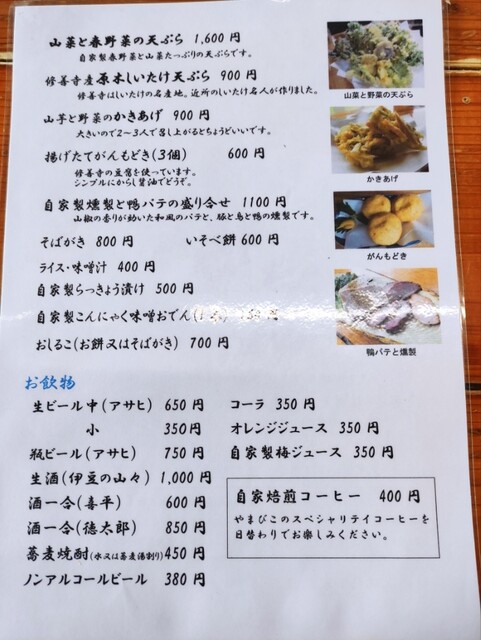 山菜と春野菜の天ぷら 1,600 円
自家製春野菜と山菜たっぷりの天ぷらです。
修善寺産原木しいたけ天ぷら 900 円
修善寺はしいたけの名産地。近所のしいたけ名人が作りました。
山芋と野菜のかきあげ 900 円
大きいので2~3人で召し上がるとちょうどいいです。
揚げたてがんもどき(3個) 600 円
修善寺の豆腐を使っています。
シンプルにからし醤油でどうぞ。
自家製燻製と鴨パテの盛り合せ 1100 円
山椒の香りが効いた和風のパテと、豚と鳥と鴨の燻製です。
そばがき 800 円 いそべ餅 600 円
ライス・味噌汁 400 円
自家製らっきょう漬け 500 円
自家製こんにゃく味噌おでん( 円
おしるこ(お餅又はそばがき) 700 円
山菜と野菜の天ぷら
かきあげ
がんもどき
鴨パテと燻製
お飲物
生ビール中(アサヒ) 650 円
小 350 円
瓶ビール(アサヒ) 750 円
生酒(伊豆の山々) 1,000 円
酒一合(喜平) 600 円
酒一合(徳太郎) 850 円
蕎麦焼酎(水又は蕎麦湯割り) 450 円
ノンアルコールビール 380 円
コーラ 350 円
オレンジジュース 350 円
自家製梅ジュース 350 円
自家焙煎コーヒー 400 円
やまびこのスペシャリテイコーヒーを
日替わりでお楽しみください。